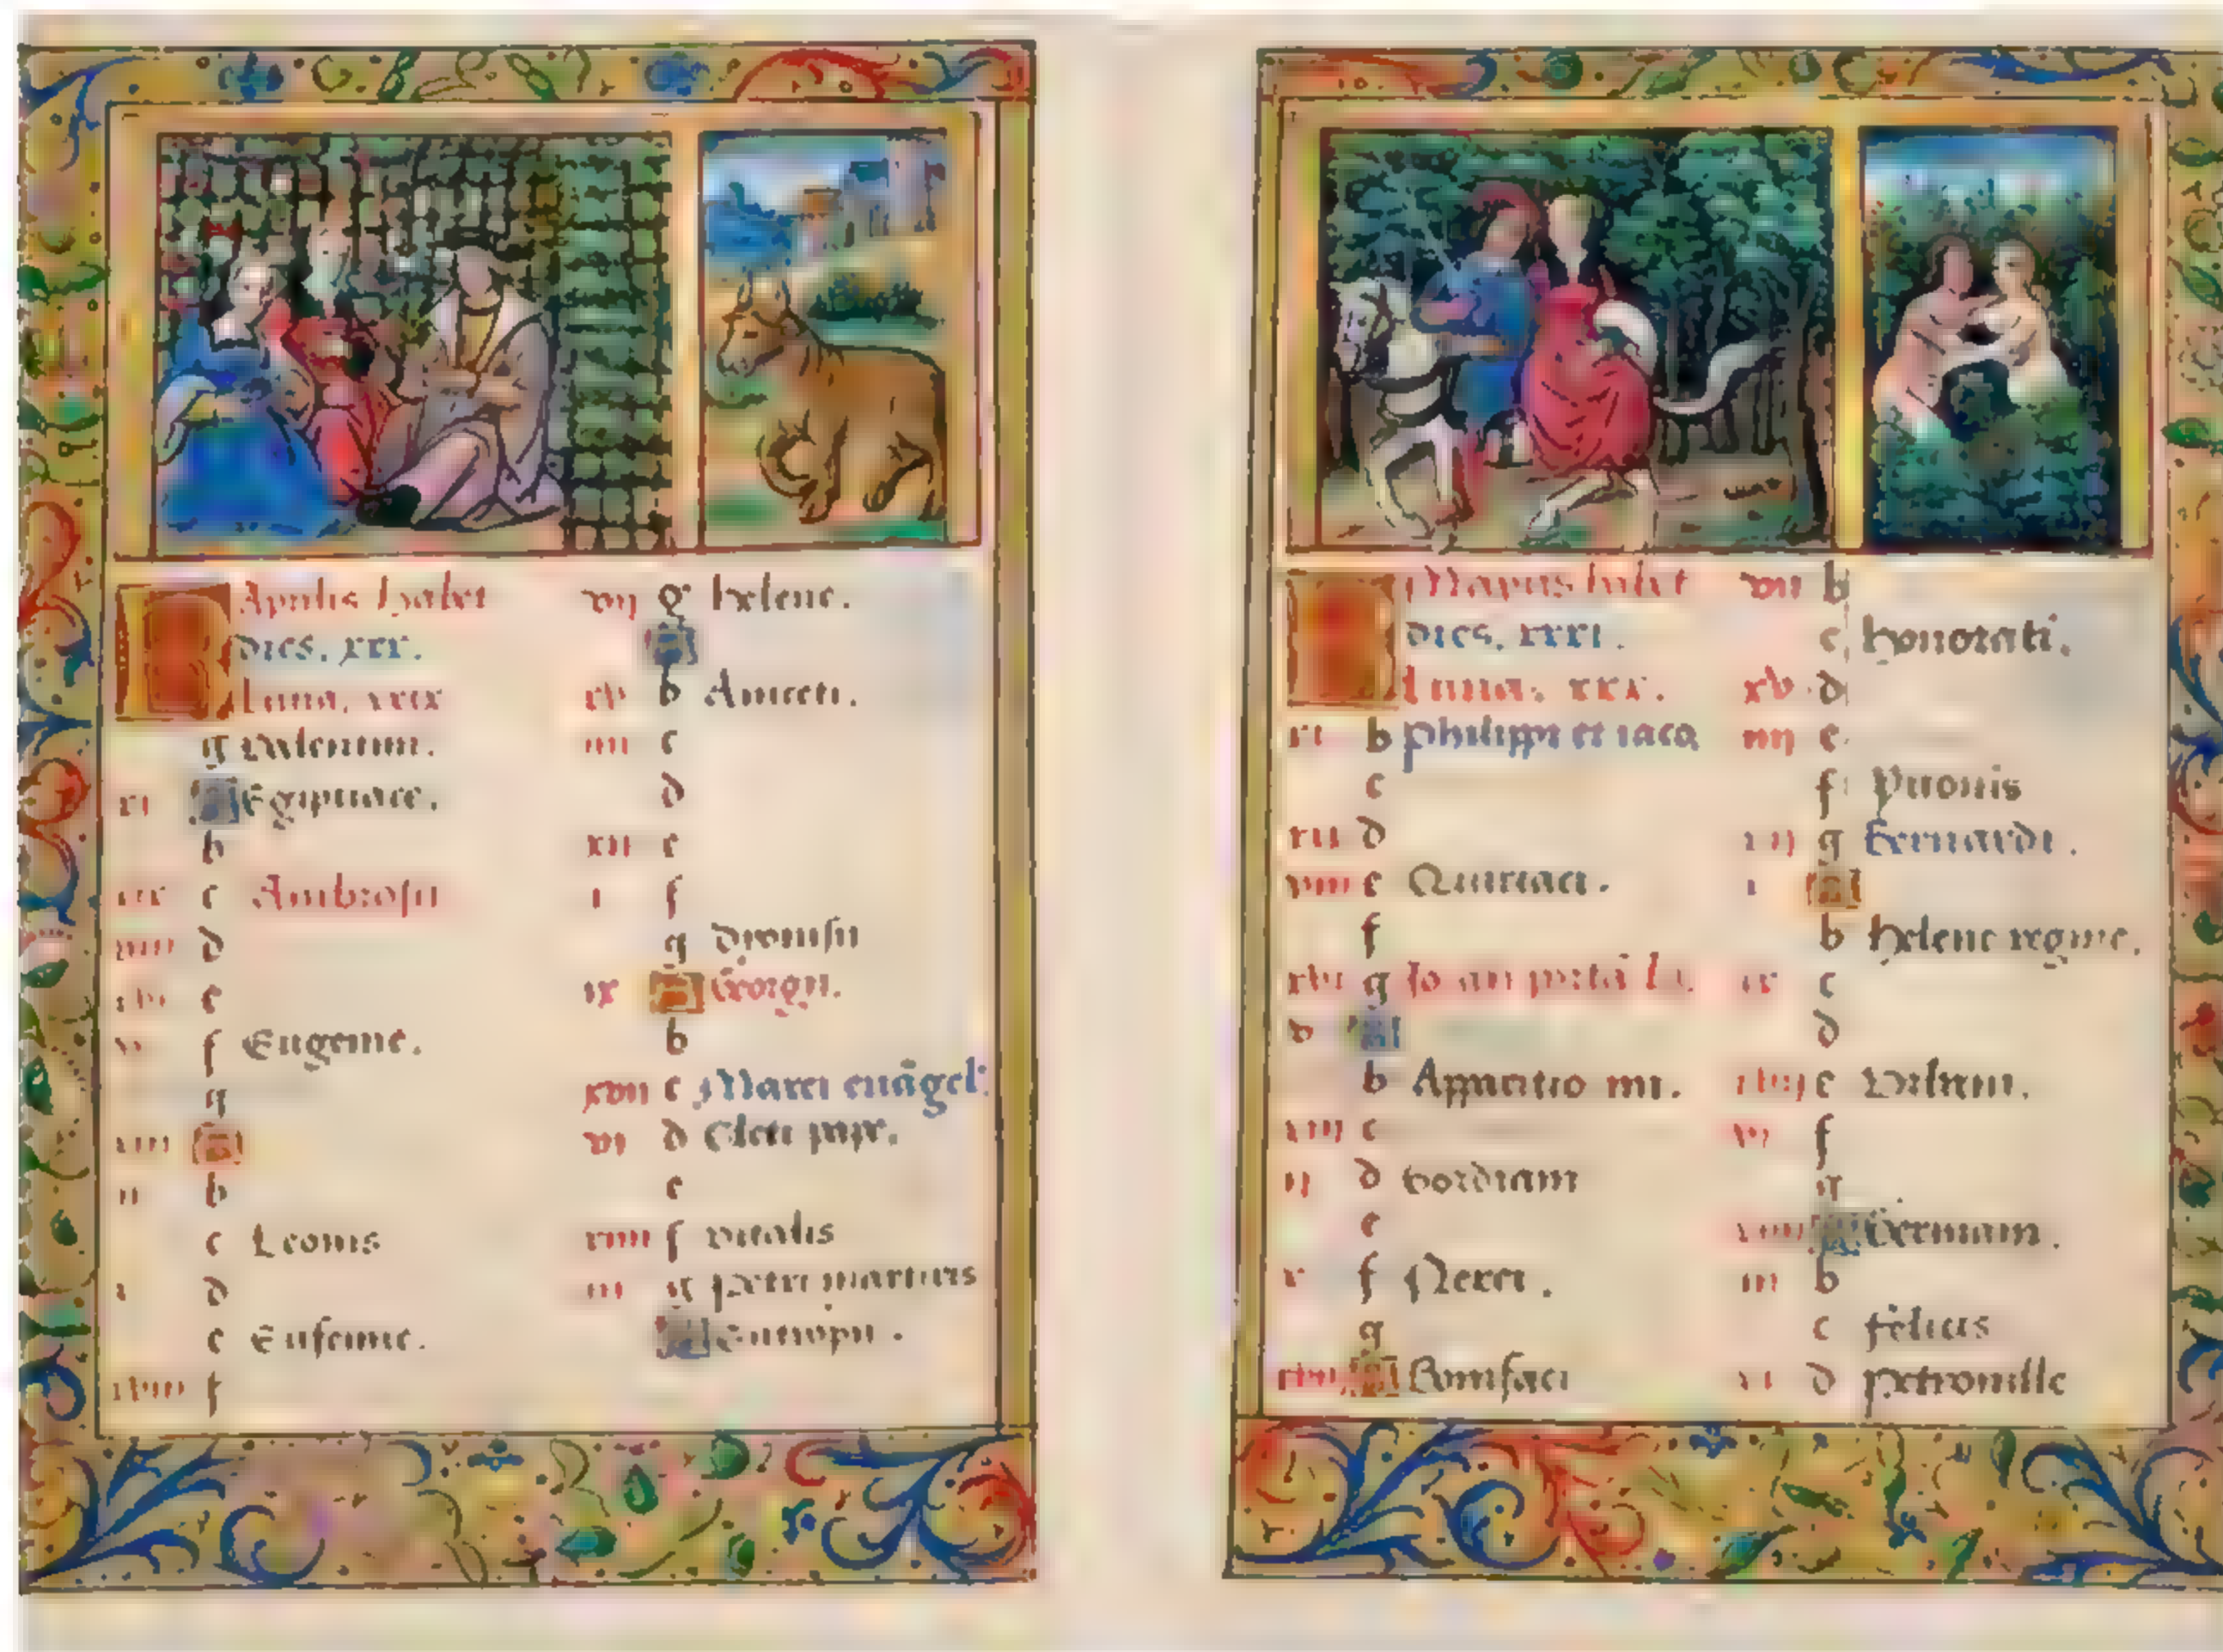 Aprilis habet
dies. xxx.
Luna. xxix
g valentini.
xi A Egiptiace.
b
xix c Ambrosii
viii d
xvi e
v f Eugenie.
g
xiii A
ii b
c Leonis
d
e Eufemie.
xviii f
vij g helene.
A
xv b Aniceti.
iiii c
d
xii e
i f
g Dionisii
ix A Georgii.
b
xvii c Marci euãgel:
vi d Cleti pape.
e
xiiii f vitalis
iii g petri martiris
A Eutropii.
Mayus habet
dies. xxxi.
Luna. xxx.
xi b philippi et iaco
c
xix d
viii e Quiriaci.
f
xvi g Io an portã la.
v A
b Apparitio mi.
xiij c
ij d Gordiani
e
x f Nerei.
g
xviii A Bonifaci
vii b
c honorati.
xv d
iiij e
f yuonis
xij g Bernardi.
i A
b helene regine.
ix c
d
xvij e
vi f
g
xiiii A Germani.
iii b
c felicis
xi d petronille